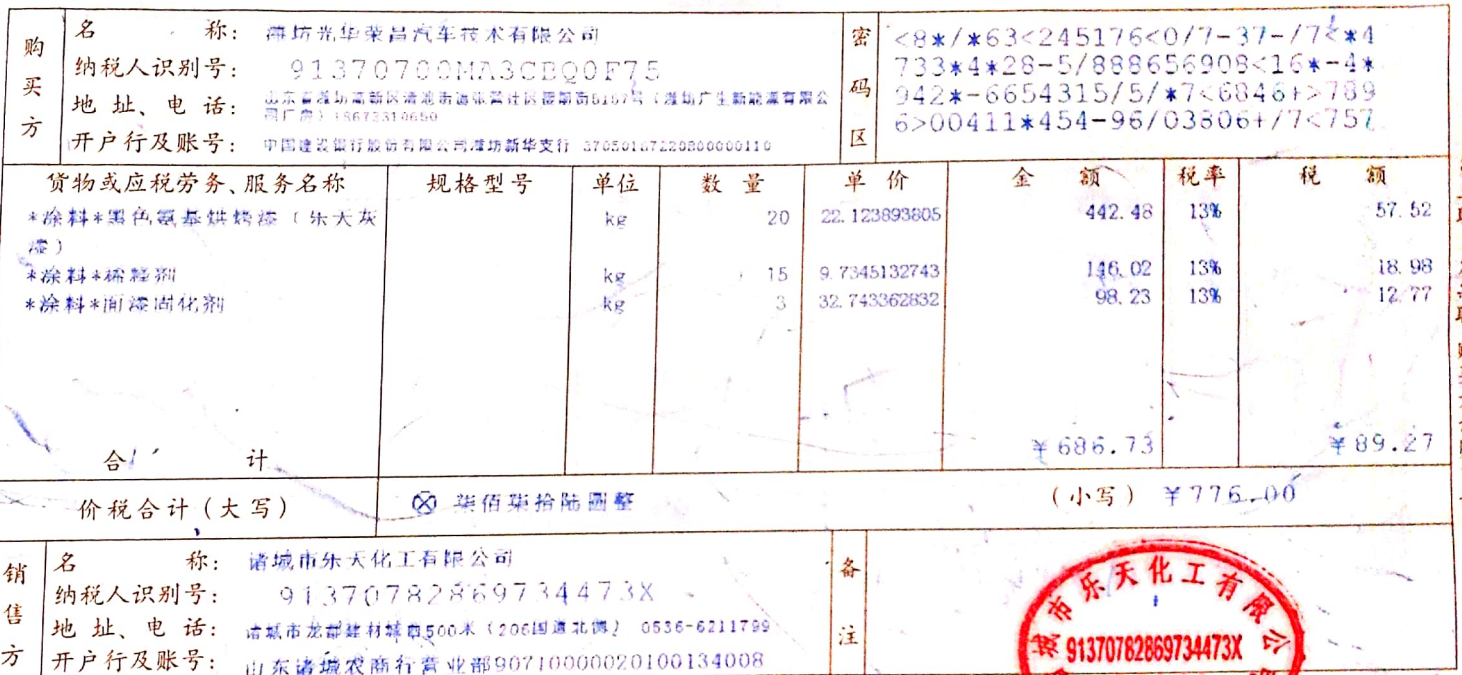 购买方
名 称: 潍坊光华荣昌汽车技术有限公司
纳税人识别号: 91370700MA3CBQ0F75
地 址、电 话: 山东省潍坊高新区清池街道张营社区 街6157号(潍坊广生新能源有限公司厂房)18673310650
开户行及账号: 中国建设银行股份有限公司潍坊新华支行 37050167220800000110
密码区
<8*/*63<245176<0/7-37-/7<*4
733*4*28-5/888656908<16*-4*
942*-6654315/5/*7<6846+>789
6>00411*454-96/03806+/7<757
货物或应税劳务、服务名称 规格型号 单位 数 量 单 价 金 额 税率 税 额
*涂料*黑色氨基烘烤漆(乐天灰漆) kg 20 22.123893805 442.48 13% 57.52
*涂料*稀释剂 kg 15 9.7345132743 146.02 13% 18.98
*涂料*面漆固化剂 kg 3 32.743362832 98.23 13% 12.77
合 计 ¥686.73 ¥89.27
价税合计(大写) ⊗ 柒佰柒拾陆圆整 (小写) ¥776.00
销售方
名 称: 诸城市乐天化工有限公司
纳税人识别号: 91370782869734473X
地 址、电 话: 诸城市龙都建材城南500米(206国道北侧) 0536-6211799
开户行及账号: 山东诸城农商行营业部9071000002010013​4008
备注
城市乐天化工有限公
91370782869734473X